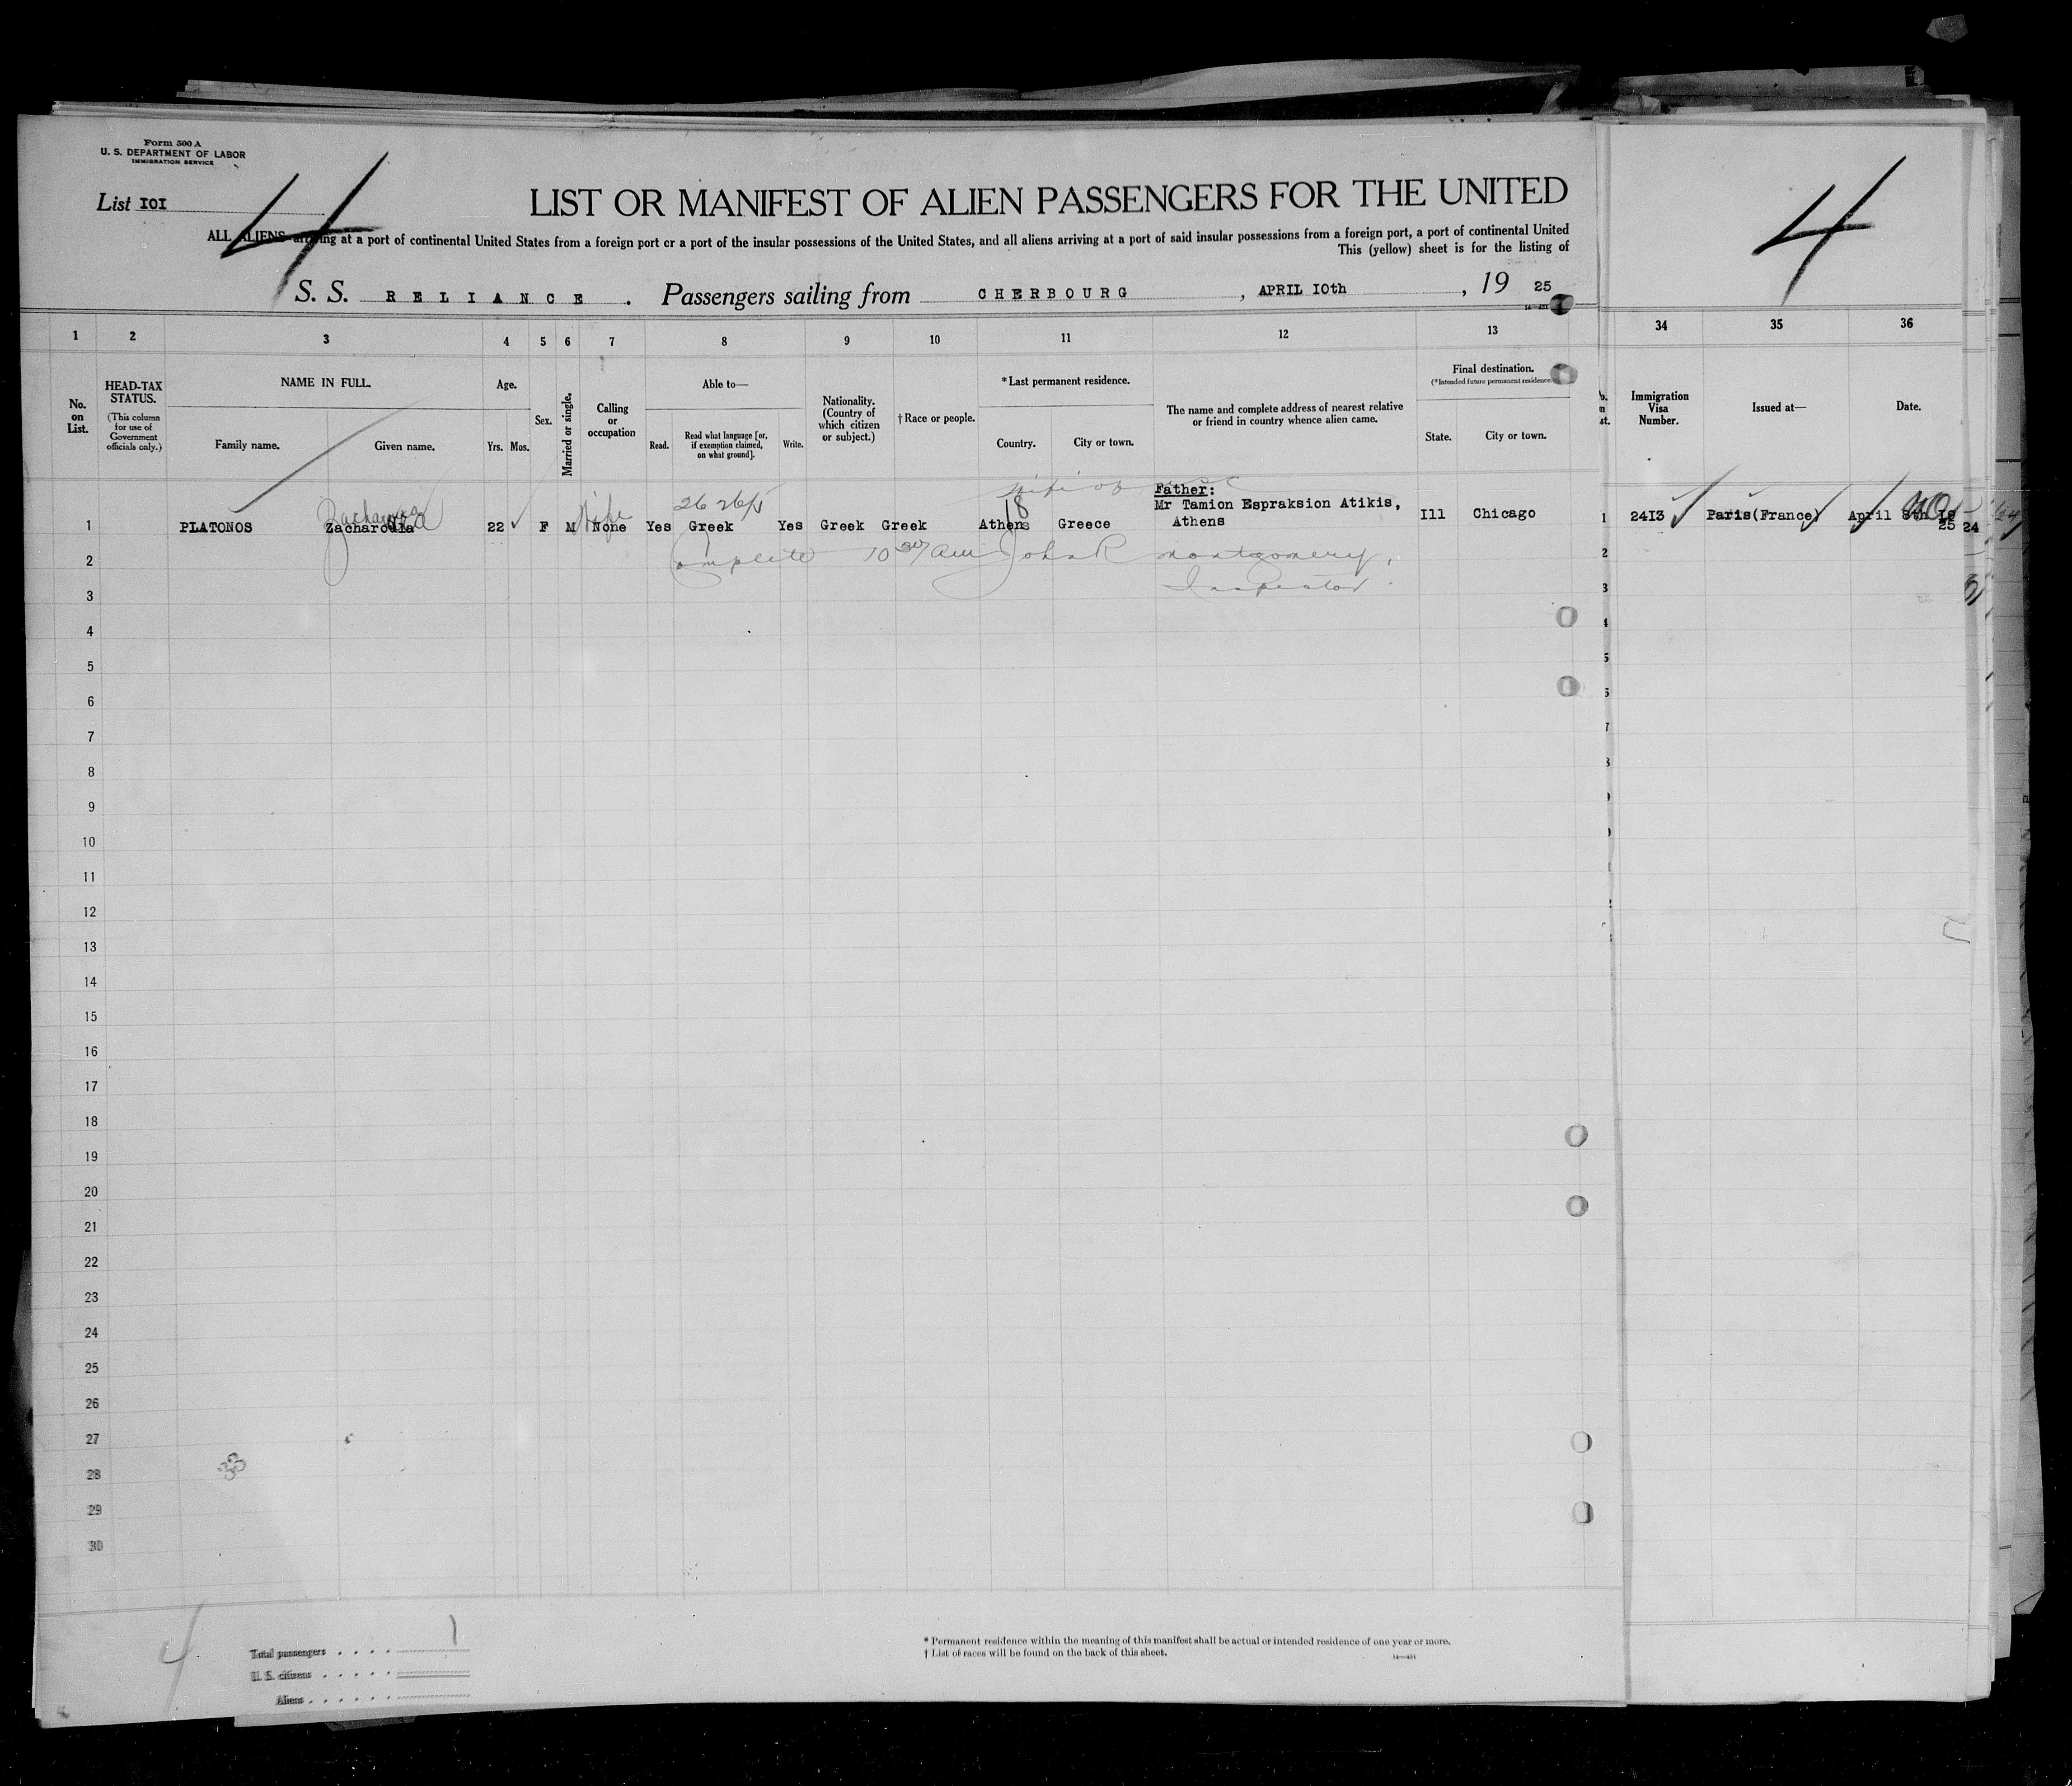 Form 500 A
U. S. DEPARTMENT OF LABOR
IMMIGRATION SERVICE
List IOI
4
4
LIST OR MANIFEST OF ALIEN PASSENGERS FOR THE UNITED
ALL ALIENS arriving at a port of continental United States from a foreign port or a port of the insular possessions of the United States, and all aliens arriving at a port of said insular possessions from a foreign port, a port of continental United
This (yellow) sheet is for the listing of
S. S. RELIANCE . Passengers sailing from CHERBOURG , APRIL IOth , 19 25
14—431
1 2 3 4 5 6 7 8 9 10 11 12 13 34 35 36
No. on List.
HEAD-TAX STATUS.
(This column for use of Government officials only.)
NAME IN FULL.
Family name. Given name.
Age.
Yrs. Mos.
Sex.
Married or single.
Calling or occupation
Able to—
Read. Read what language [or, if exemption claimed, on what ground]. Write.
Nationality. (Country of which citizen or subject.)
† Race or people.
* Last permanent residence.
Country. City or town.
The name and complete address of nearest relative or friend in country whence alien came.
Final destination.
(*Intended future permanent residence.)
State. City or town.
Immigration Visa Number.
Issued at—
Date.
wife of
Father:
Wife 26 26/5 18 Mr Tamion Espraksion Atikis,
1 PLATONOS Zacharoula 22 F M None Yes Greek Yes Greek Greek Athens Greece Athens Ill Chicago 1 24I3 Paris(France) April 8th I9
25 24
2 Complete 10 30 am John R Montgomery, 2
Inspector.
3 3
4
5
6
7
8
9
10
11
12
13
14
15
16
17
18
19
20
21
22
23
24
25
26
27
28
33
29
30
4
Total passengers . . . . 1
U. S. citizens . . . . .
Aliens . . . . . .
* Permanent residence within the meaning of this manifest shall be actual or intended residence of one year or more.
† List of races will be found on the back of this sheet.
14—431